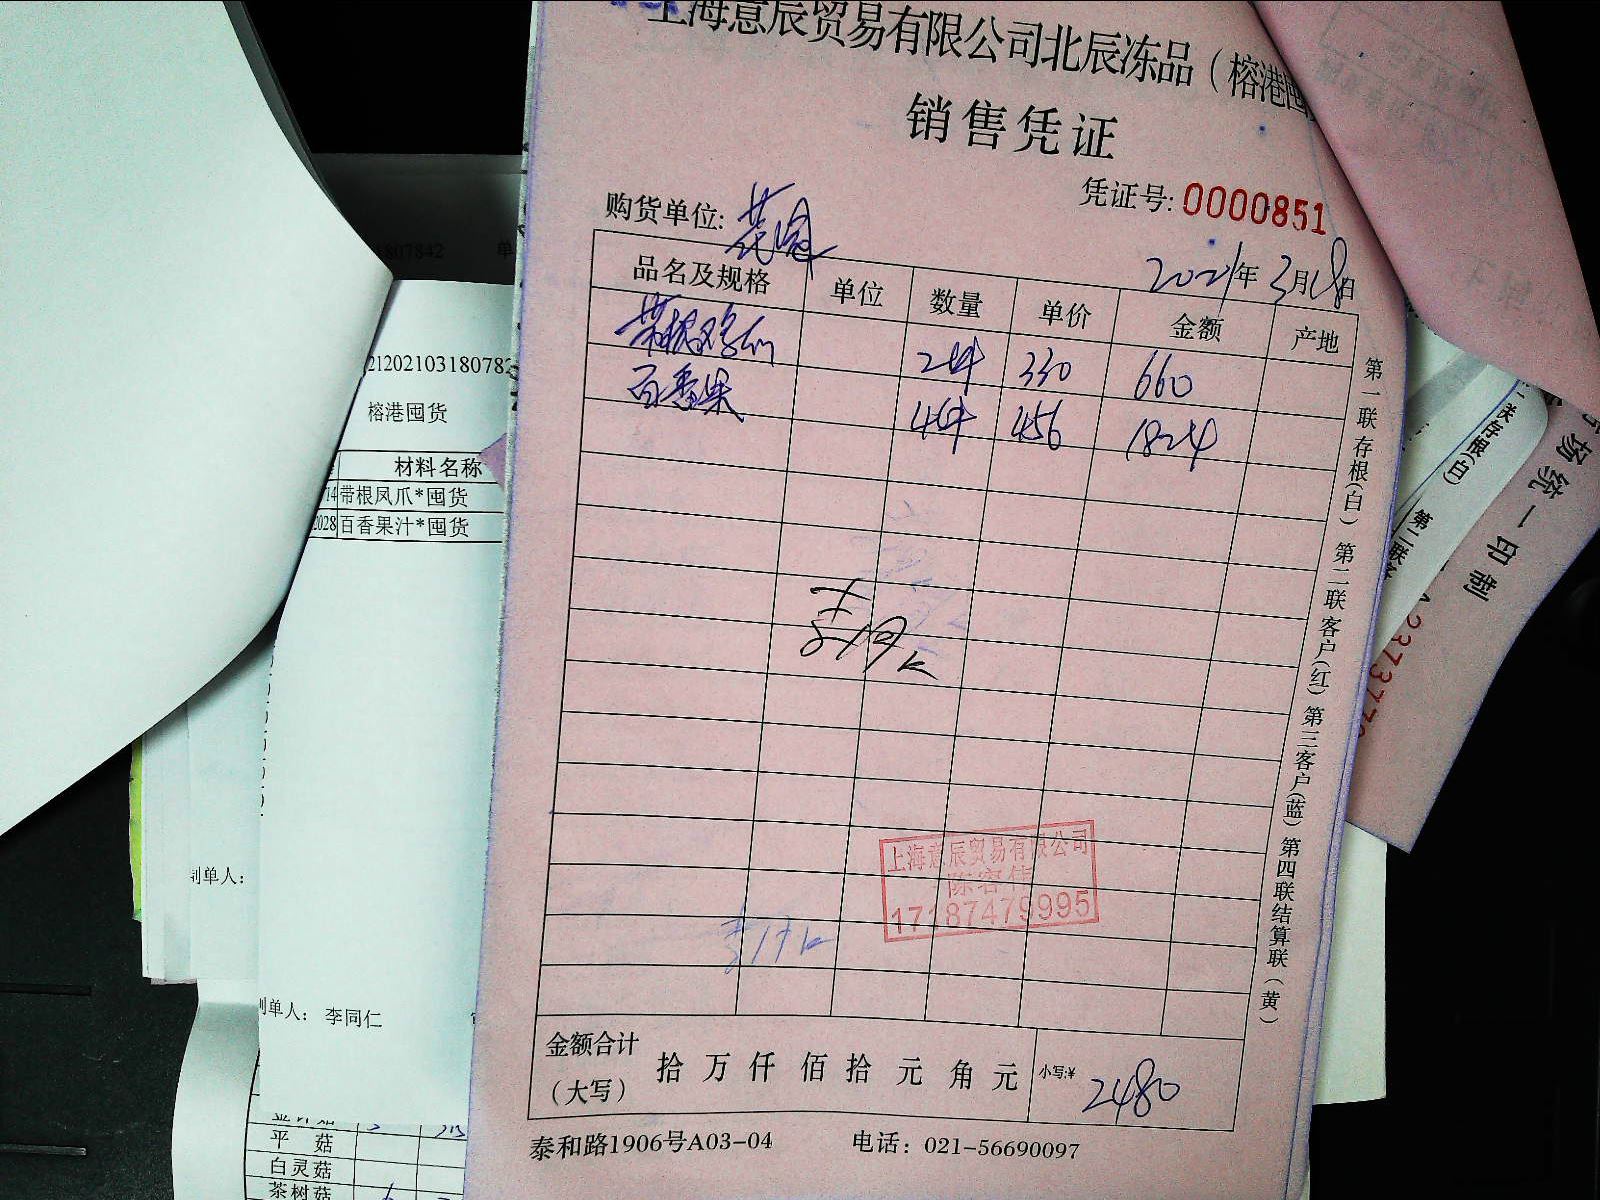 上海意辰贸易有限公司北辰冻品（榕港囤
销售凭证
凭证号: 0000851
购货单位:
2021年3月18日
品名及规格 单位 数量 单价 金额 产地
2件 330 660
百香果 4件 456 1824
第一联存根(白) 第二联客户(红) 第三客户(蓝) 第四联结算联(黄)
上海意辰贸易有限公司
17187479995
金额合计
(大写)
拾 万 仟 佰 拾 元 角 元
小写:¥ 2480
泰和路1906号A03-04 电话: 021-56690097
1807842 单
21202103180782
榕港囤货
材料名称
14 带根凤爪*囤货
2028 百香果汁*囤货
制单人:
制单人: 李同仁
平 菇
白灵菇
茶树菇
关存根(白)
第二联客
场统一印制